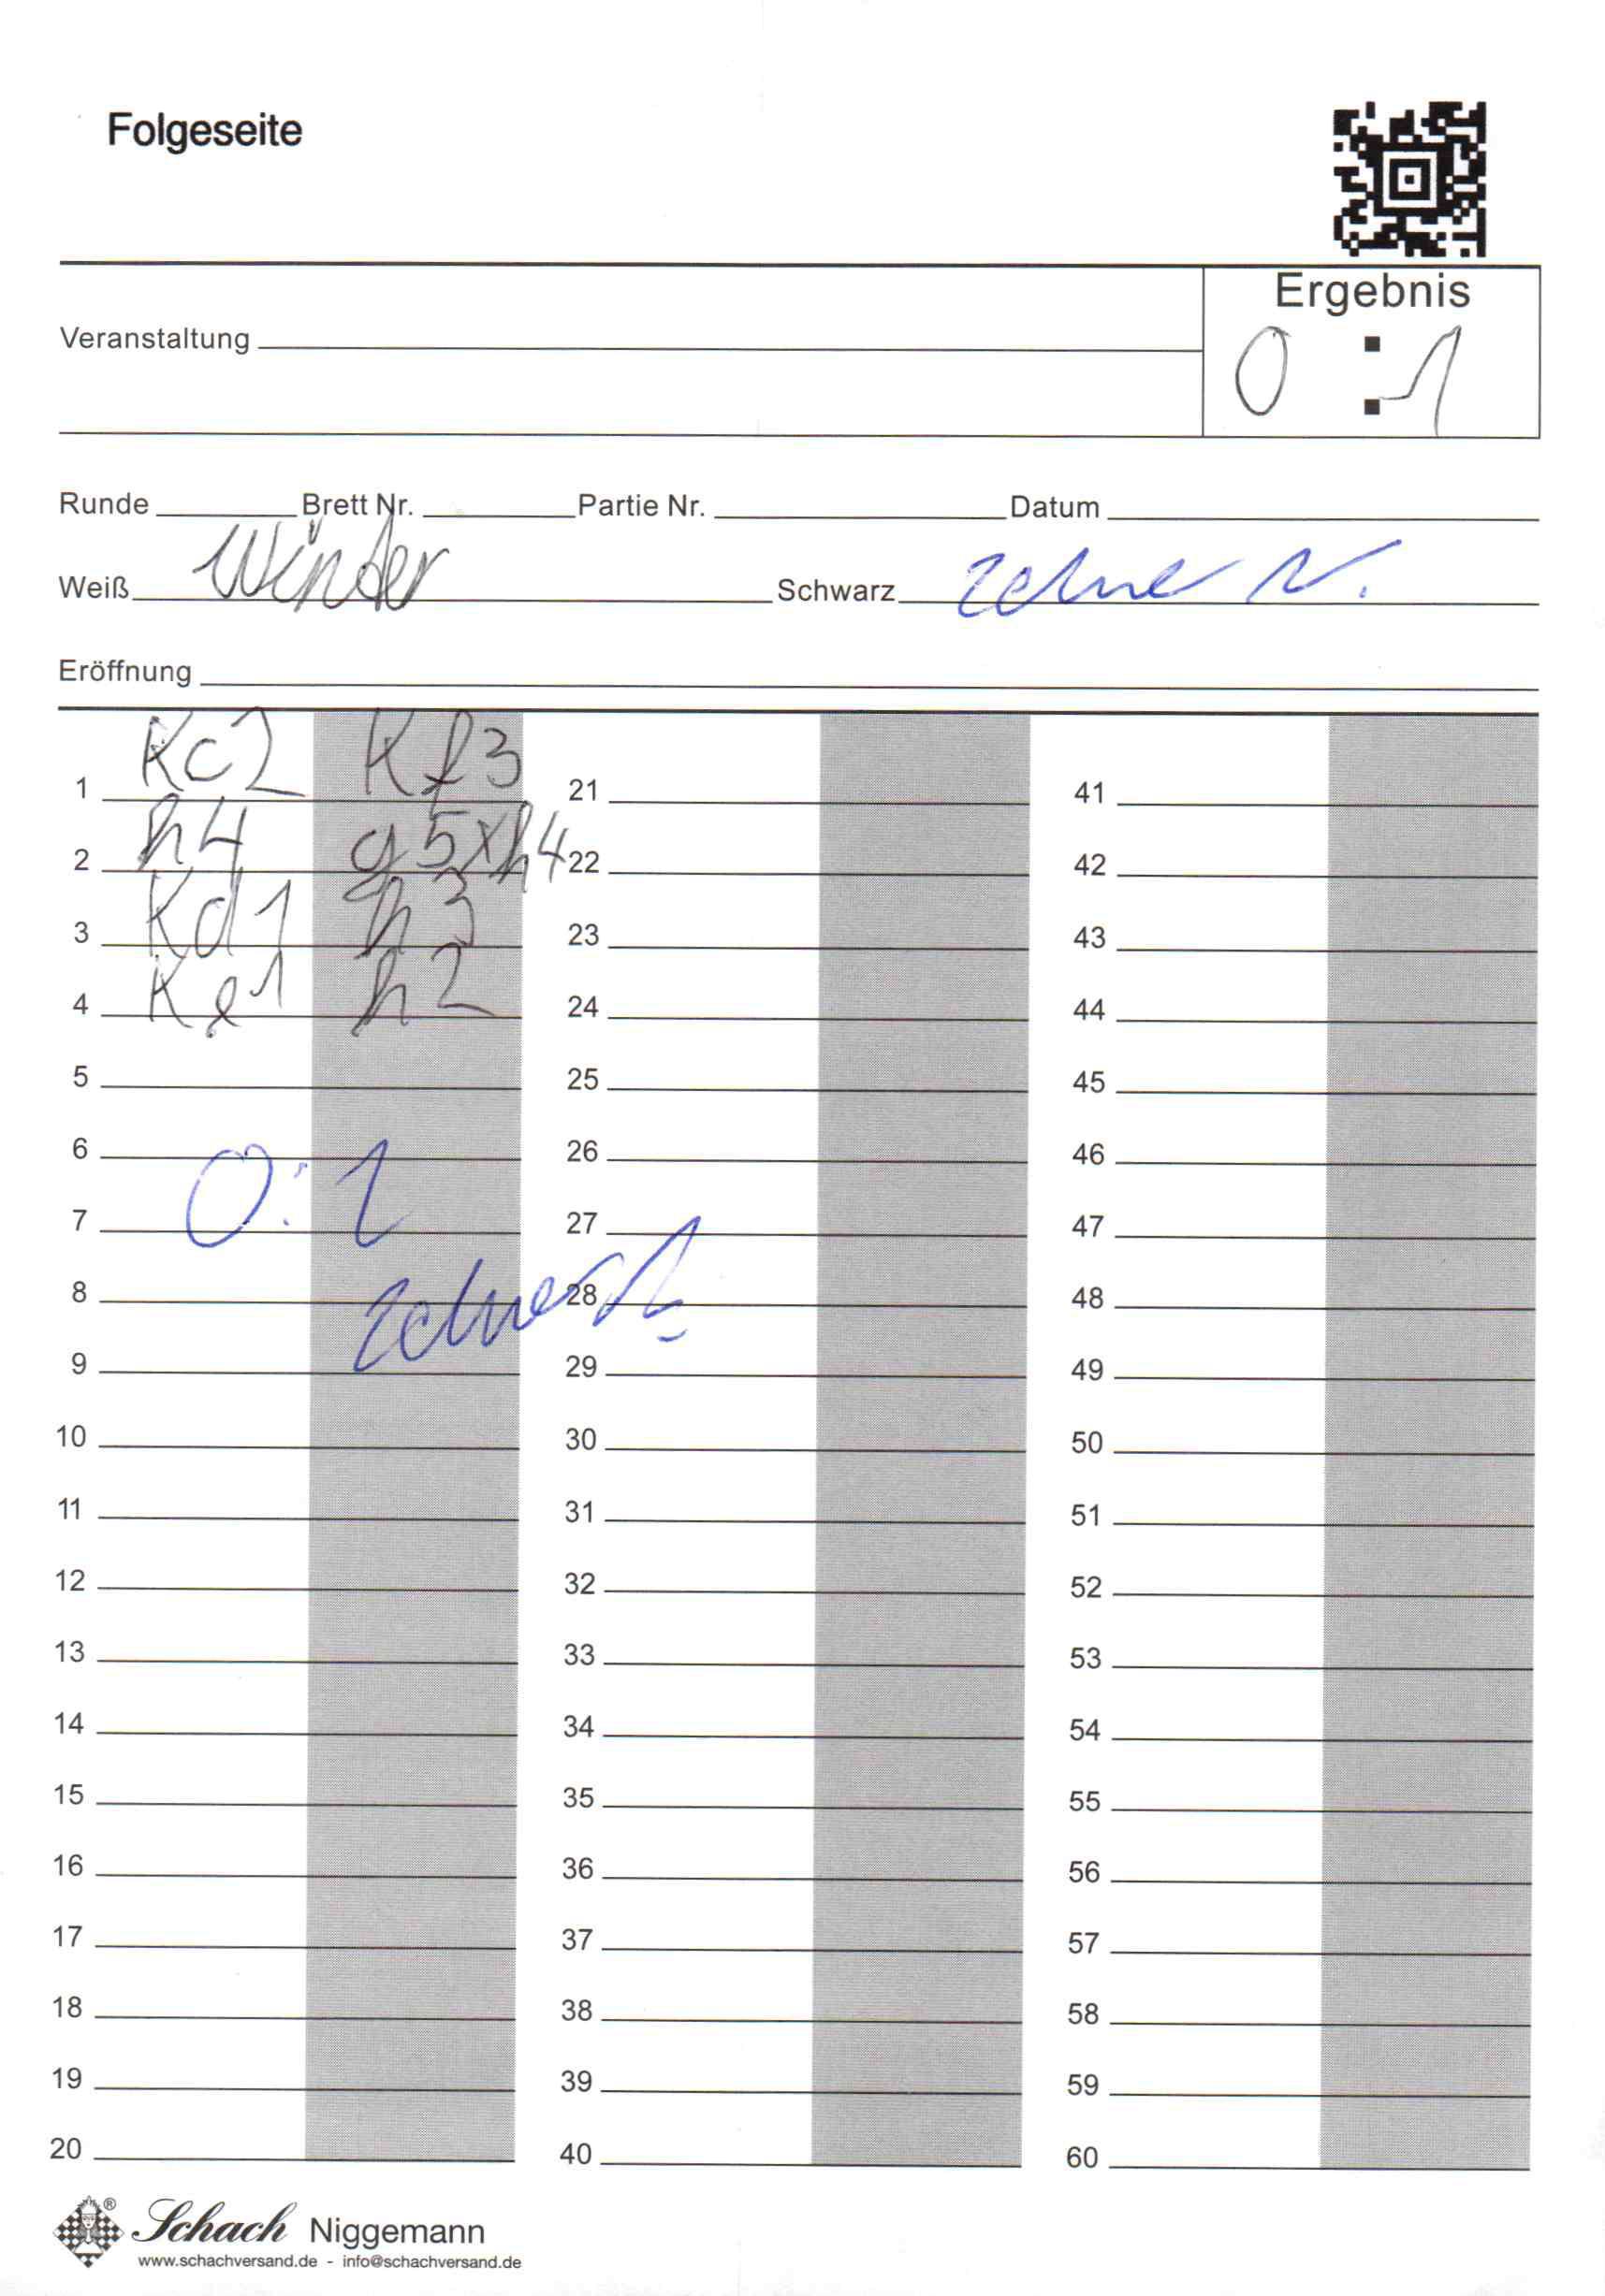 Folgeseite
Ergebnis
0 : 1
Veranstaltung
Runde Brett Nr. Partie Nr. Datum
Weiß Winter Schwarz
Eröffnung
1 Kc2 Kf3 21 41
2 h4 g5xh4 22 42
3 Kd1 h3 23 43
4 Ke1 h2 24 44
5 25 45
6 26 46
0:1
7 27 47
8 28 48
9 29 49
10 30 50
11 31 51
12 32 52
13 33 53
14 34 54
15 35 55
16 36 56
17 37 57
18 38 58
19 39 59
20 40 60
® Schach Niggemann
www.schachversand.de - info@schachversand.de